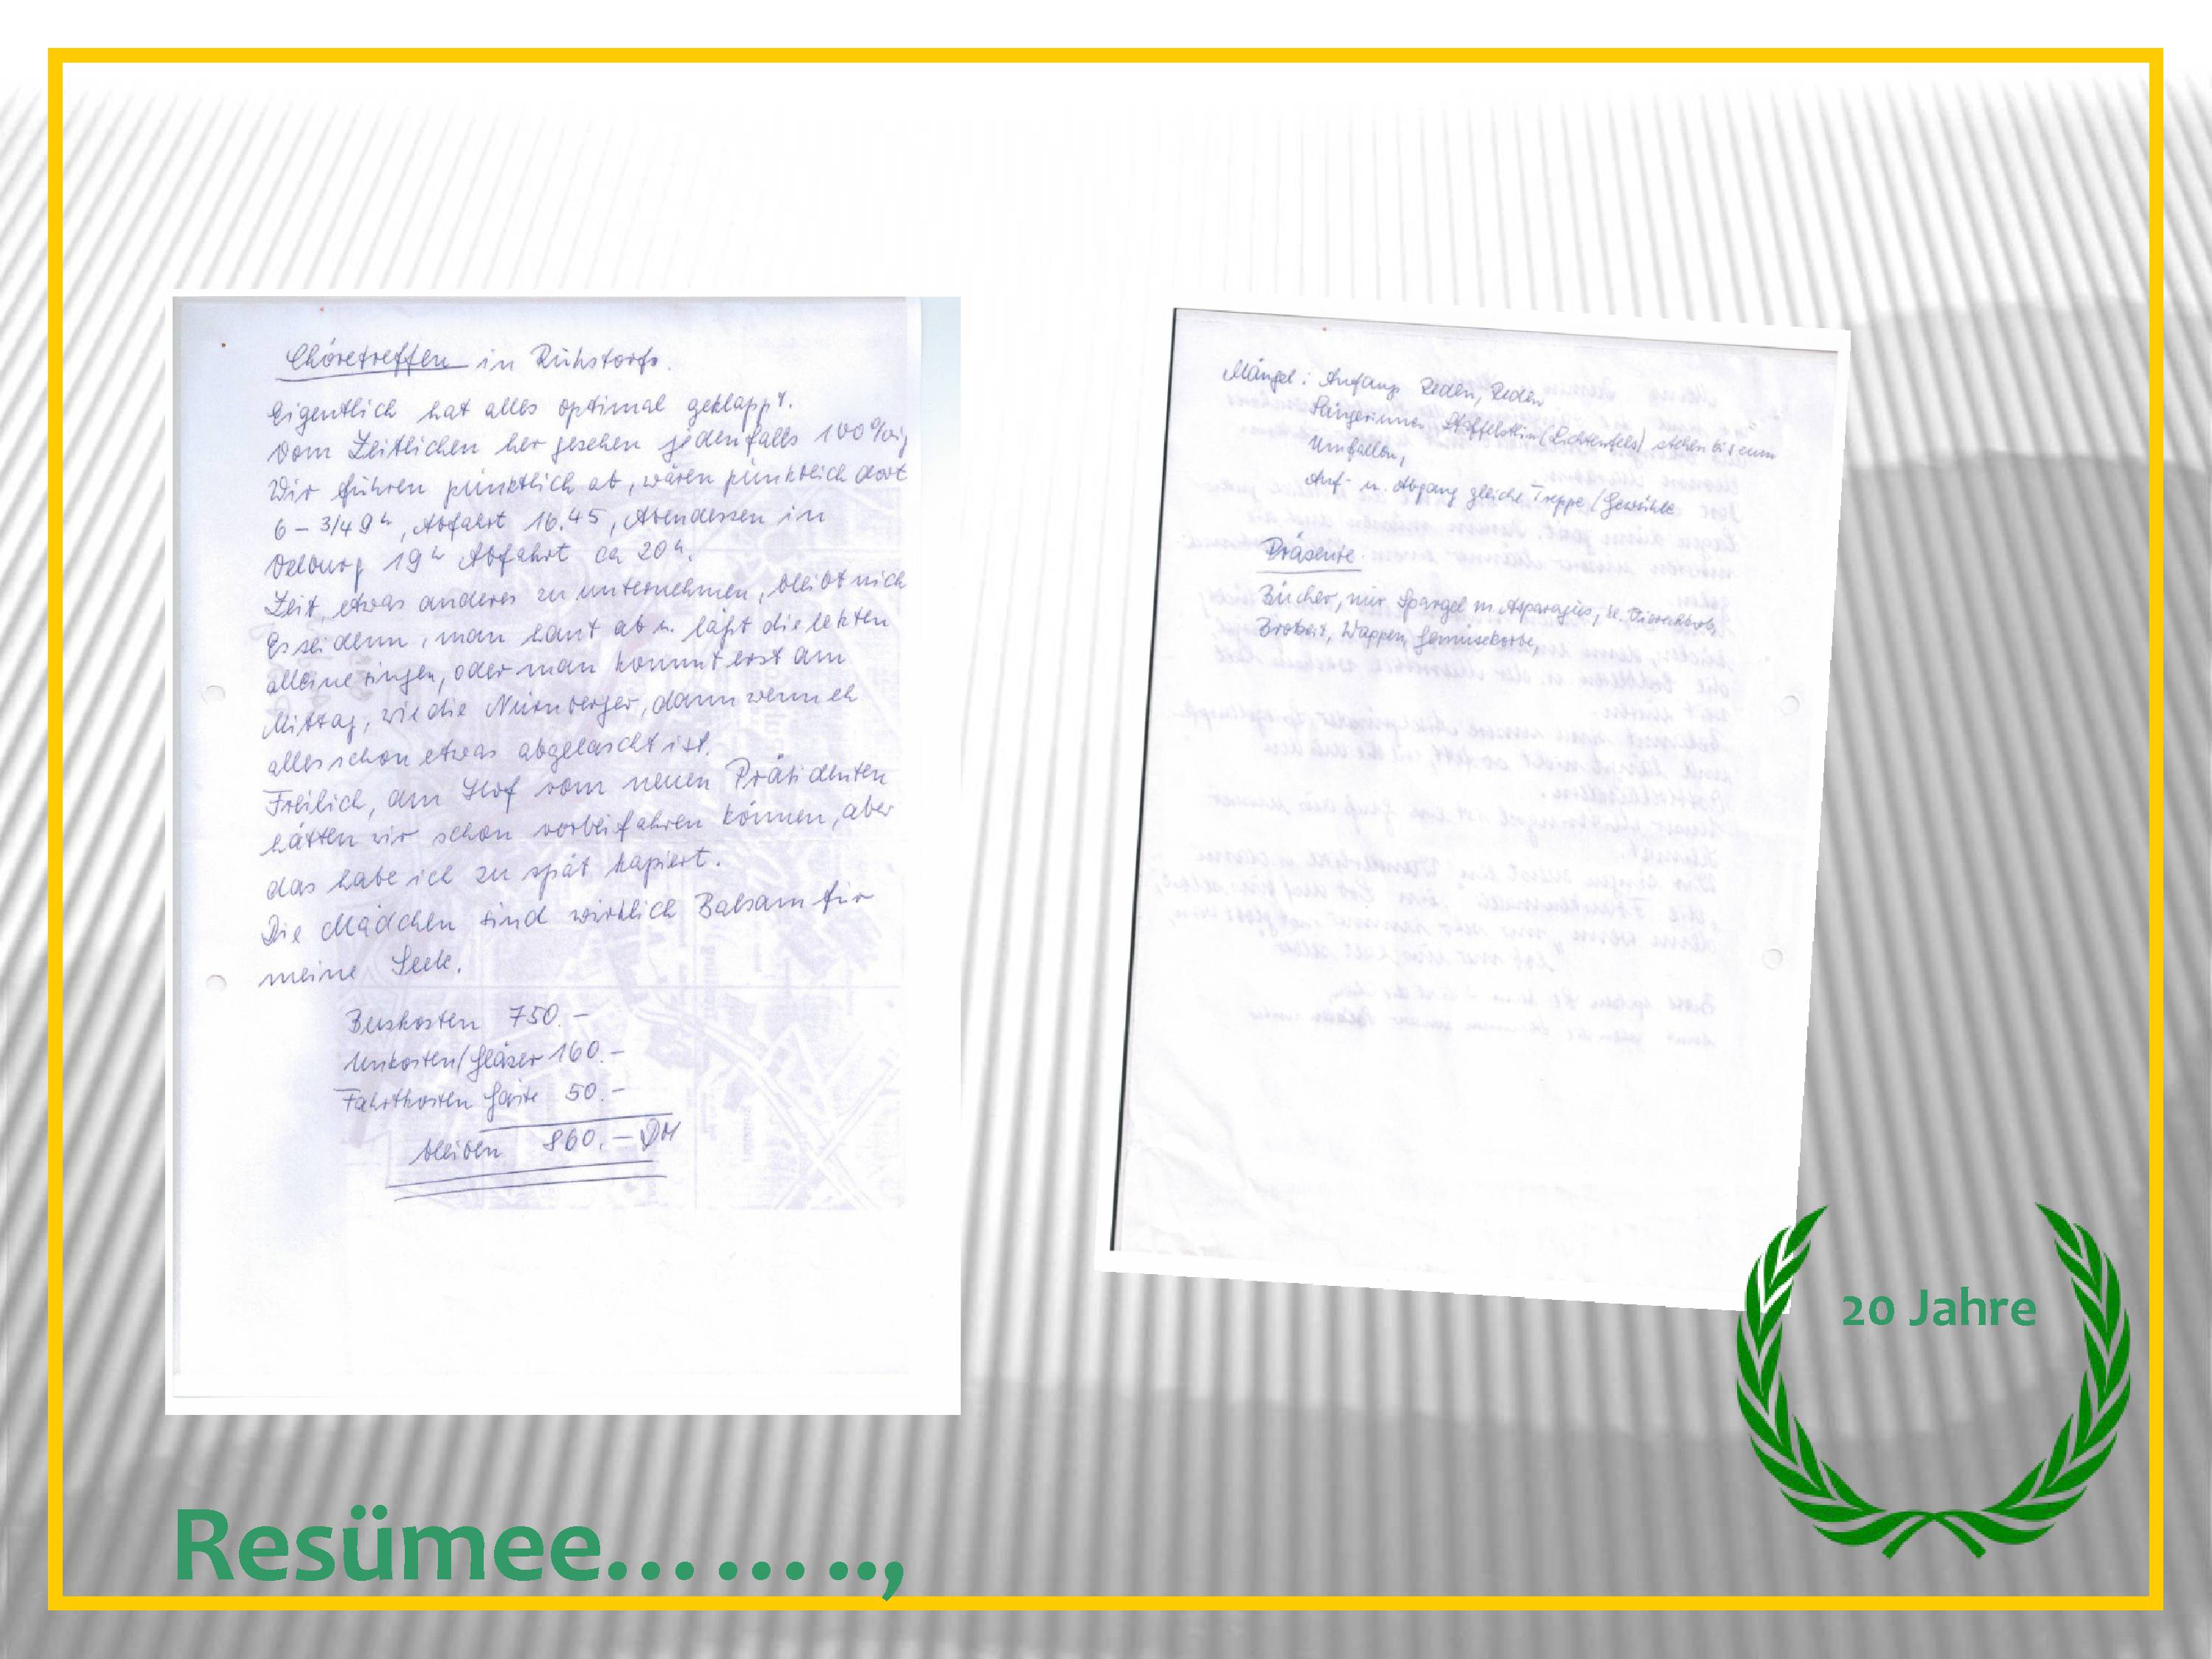 Chöretreffen in Ruhstorf.
Eigentlich hat alles optimal geklappt.
Vom Zeitlichen her gesehen jedenfalls 100%ig
Wir führen pünktlich ab, wären pünktlich dort
6 – 3/4 9h, Abfahrt 16.45, Abendessen in
19h Abfahrt ca 20h.
Zeit, etwas anderes zu unternehmen, bleibt nich
Es sei denn, man haut ab u. läßt die letzten
alleine singen, oder man kommt erst am
Mittag, wie die Nürnberger, dann wenn eh
alles schon etwas abgelascht ist.
Freilich, am Hof vom neuen Präsidenten
hätten wir schon vorbeifahren können, aber
das habe ich zu spät kapiert.
Die Mädchen sind wirklich Balsam für
meine Seele.
Buskosten 750.–
Unkosten/Gläser 160.–
Fahrtkosten Gäste 50.–
bleiben 860.– DM
Mängel: Anfang Reden, Reden
Sängerinnen Staffelstein (Lichtenfels) stehen bis zum
Umfallen,
Auf- u. Abgang gleiche Treppe / Gewühle
Präsente.
Bücher, mir Spargel m. Asparagus,
Brotzeit, Wappen, Gemüsekorbe,
20 Jahre
Resümee……..,